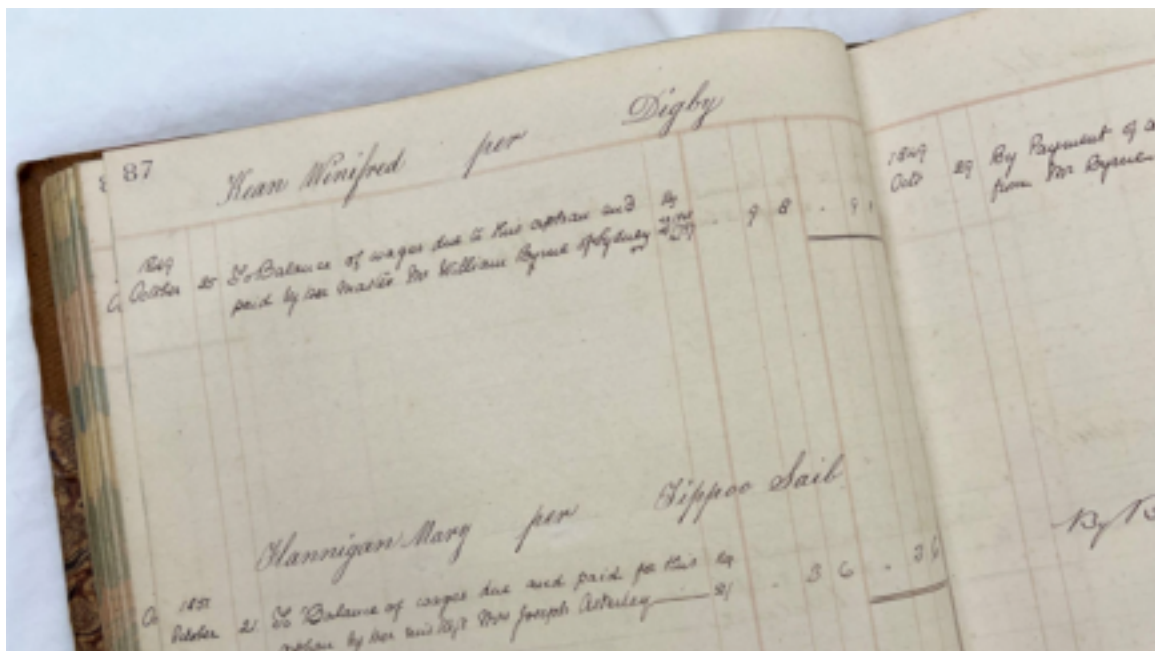 87
Kean Winifred per Digby
1849
October 25 To Balance of wages due to this orphan and
paid by her Master Mr William Byrne of Sydney
9 8 . 9
1849
Oct 29 By Payment of
from Mr Byrne
Flannigan Mary per Tippoo Saib
185
October 21 To Balance of wages due and paid for this
orphan by her mistress Mrs Joseph Asterley
3 6 . 3 6
By